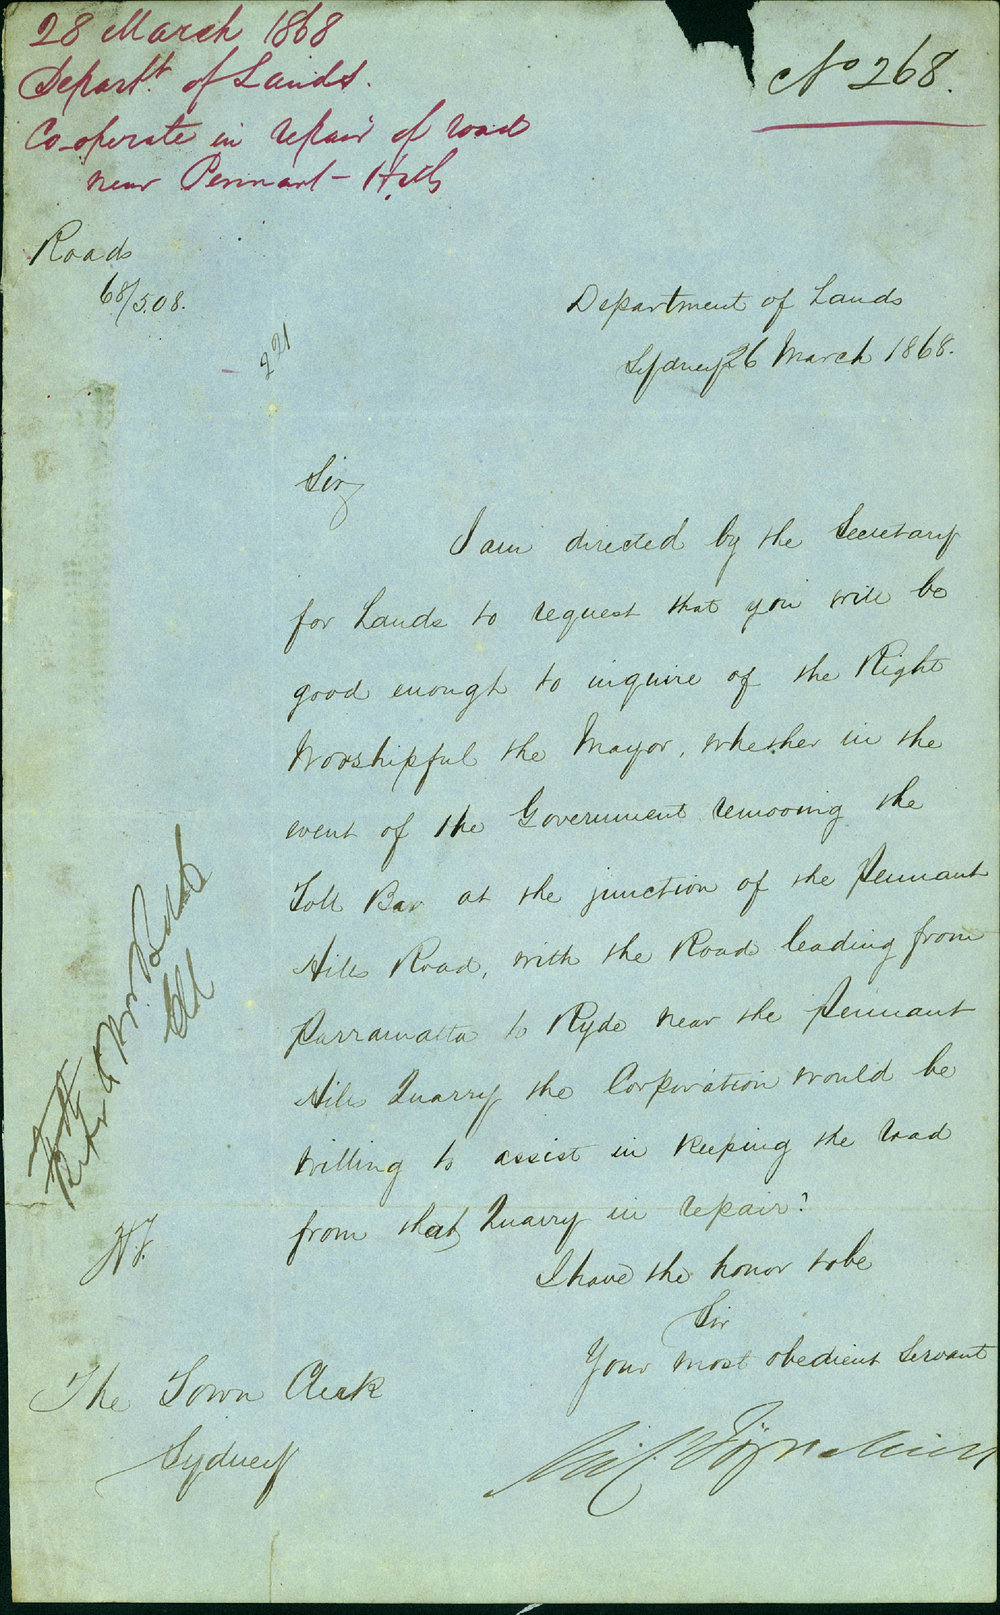 28 March 1868
Depart.t of Lands.
Co-operate in repair of road
near Pennant-Hills
No 268.
Roads
68/508.
221
Department of Lands
Sydney 26 March 1868.
Sir,
I am directed by the Secretary
for Lands to request that you will be
good enough to inquire of the Right
Worshipful the Mayor, whether in the
event of the Government removing the
Toll Bar at the junction of the Pennant
Hills Road, with the Road leading from
Parramatta to Ryde near the Pennant
Hills Quarry the Corporation would be
willing to assist in keeping the road
from that Quarry in repair?
I have the honor to be
Sir
Your most obedient Servant
The Town Clerk
Sydney